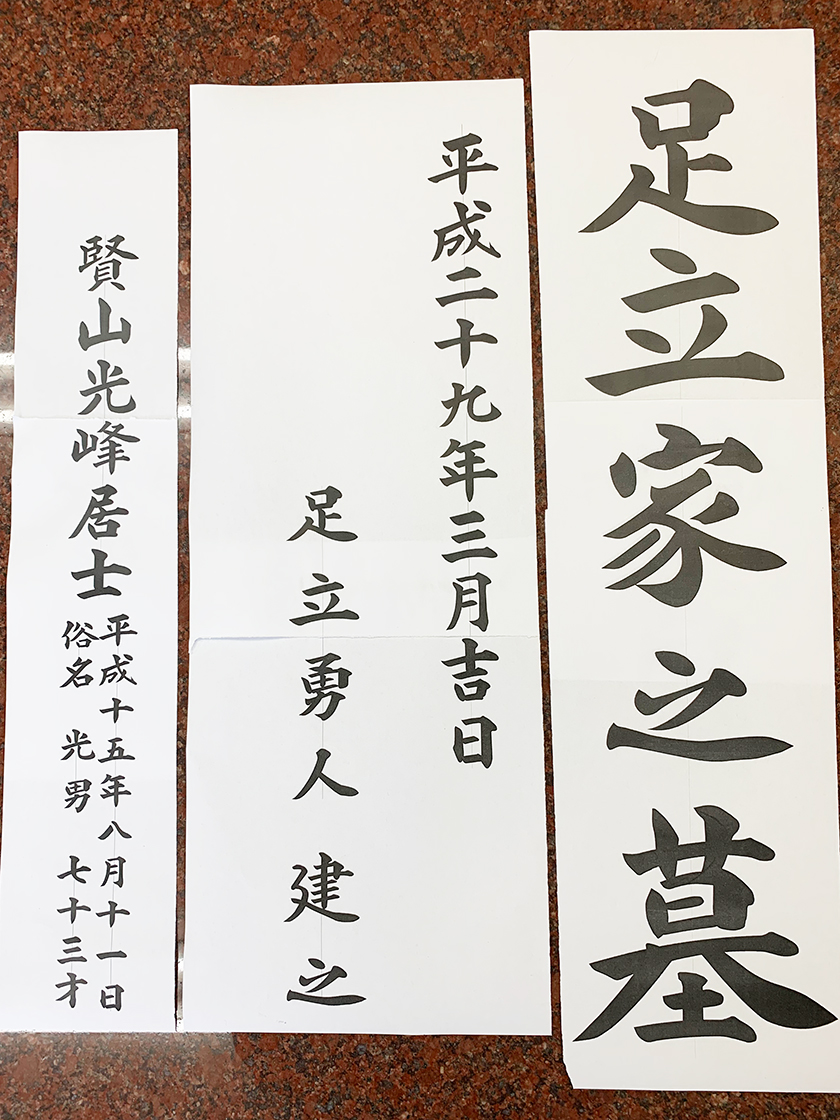 足立家之墓
平成二十九年三月吉日
足立勇人 建之
賢山光峰居士
平成十五年八月十一日
俗名 光男 七十三才